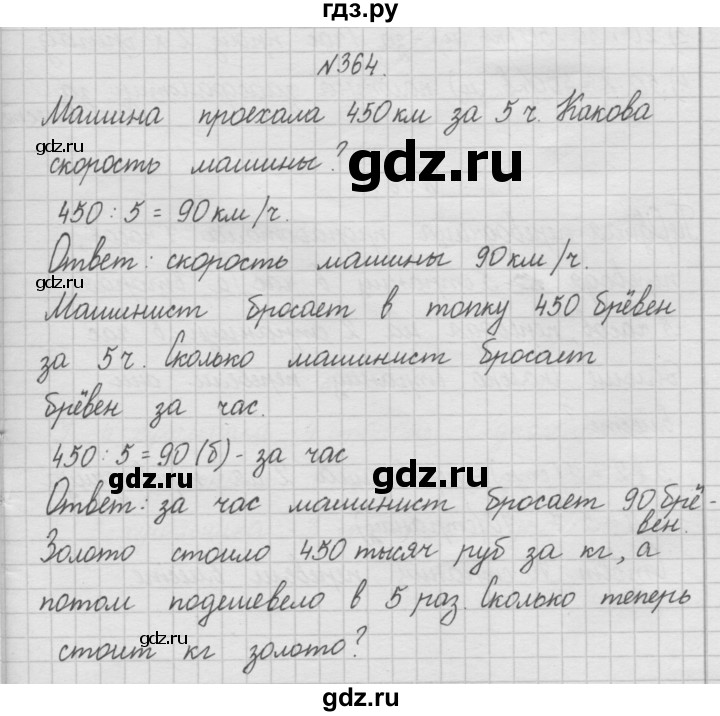 гдз.ру
№364.
Машина проехала 450 км за 5 ч. Какова
gdz.ru
скорость машины?
gdz.ru
450 : 5 = 90 км/ч.
Ответ: скорость машины 90 км/ч.
gdz.ru
Машинист бросает в топку 450 брёвен
за 5 ч. Сколько машинист бросает
брёвен за час.
450 : 5 = 90 (б) - за час
gdz.ru
gdz.ru
Ответ: за час машинист бросает 90 брё-
вен.
Золото стоило 450 тысяч руб за кг, а
потом подешевело в 5 раз. Сколько теперь
gdz.ru
gdz.ru
стоит кг золото?
gdz.ru